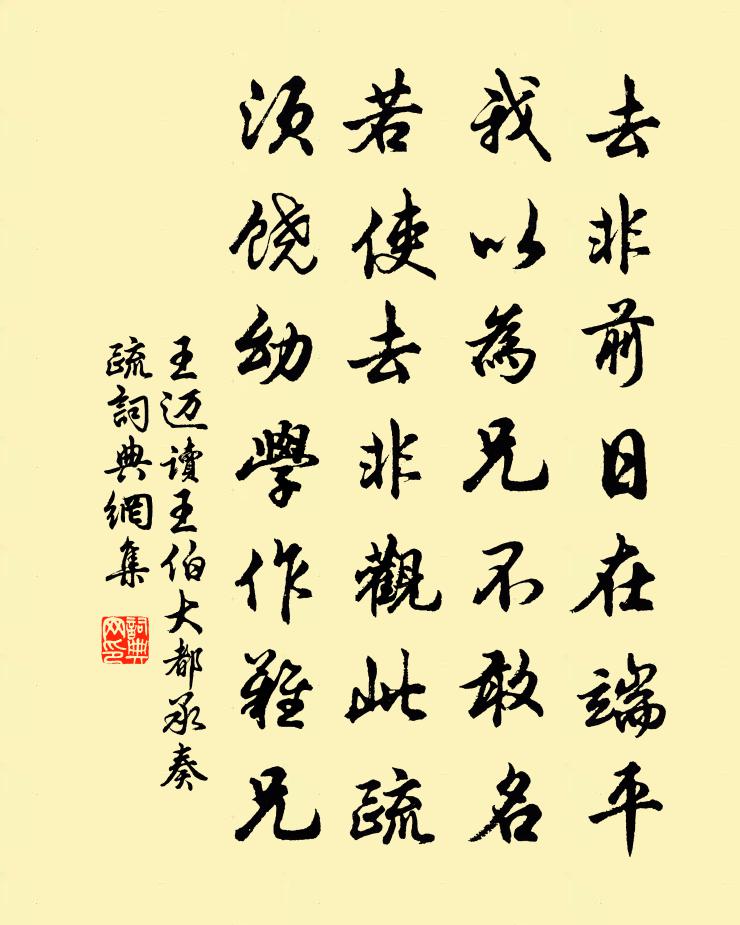 去非前日在端平
我以為兄不敢名
若使去非觀此疏
须饶幼學作難兄
王迈讀王伯大都承奏
疏詞典網集
詞典
网印